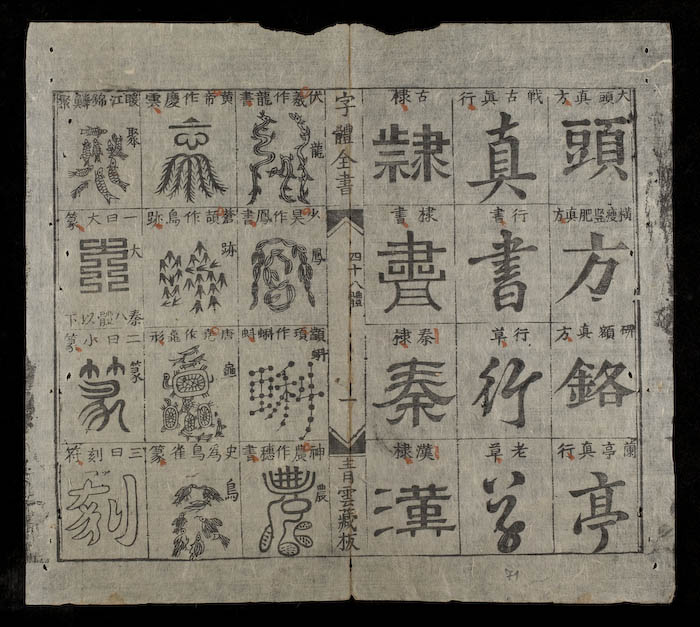 大頭真方
頭
橫瘦豎肥真方
方
碑額真方
蘭亭真行
亭
戰古真行
真
行書
書
行草
行
老草
草
古隸
隸
隸書
書
秦隸
秦
漢隸
漢
字體全書
四十八體
一
青雲藏板
伏羲作龍書
龍
少昊作鳳書
鳳
顓頊作蝌蚪
蚪
神農作穗書
農
黃帝作慶雲
蒼頡作鳥跡
跡
唐堯作龜形
龜
史為鳥雀篆
鳥
暖江錦鱗聚
聚
一曰大篆
大
秦八體以下
二曰小篆
篆
三曰刻符
刻